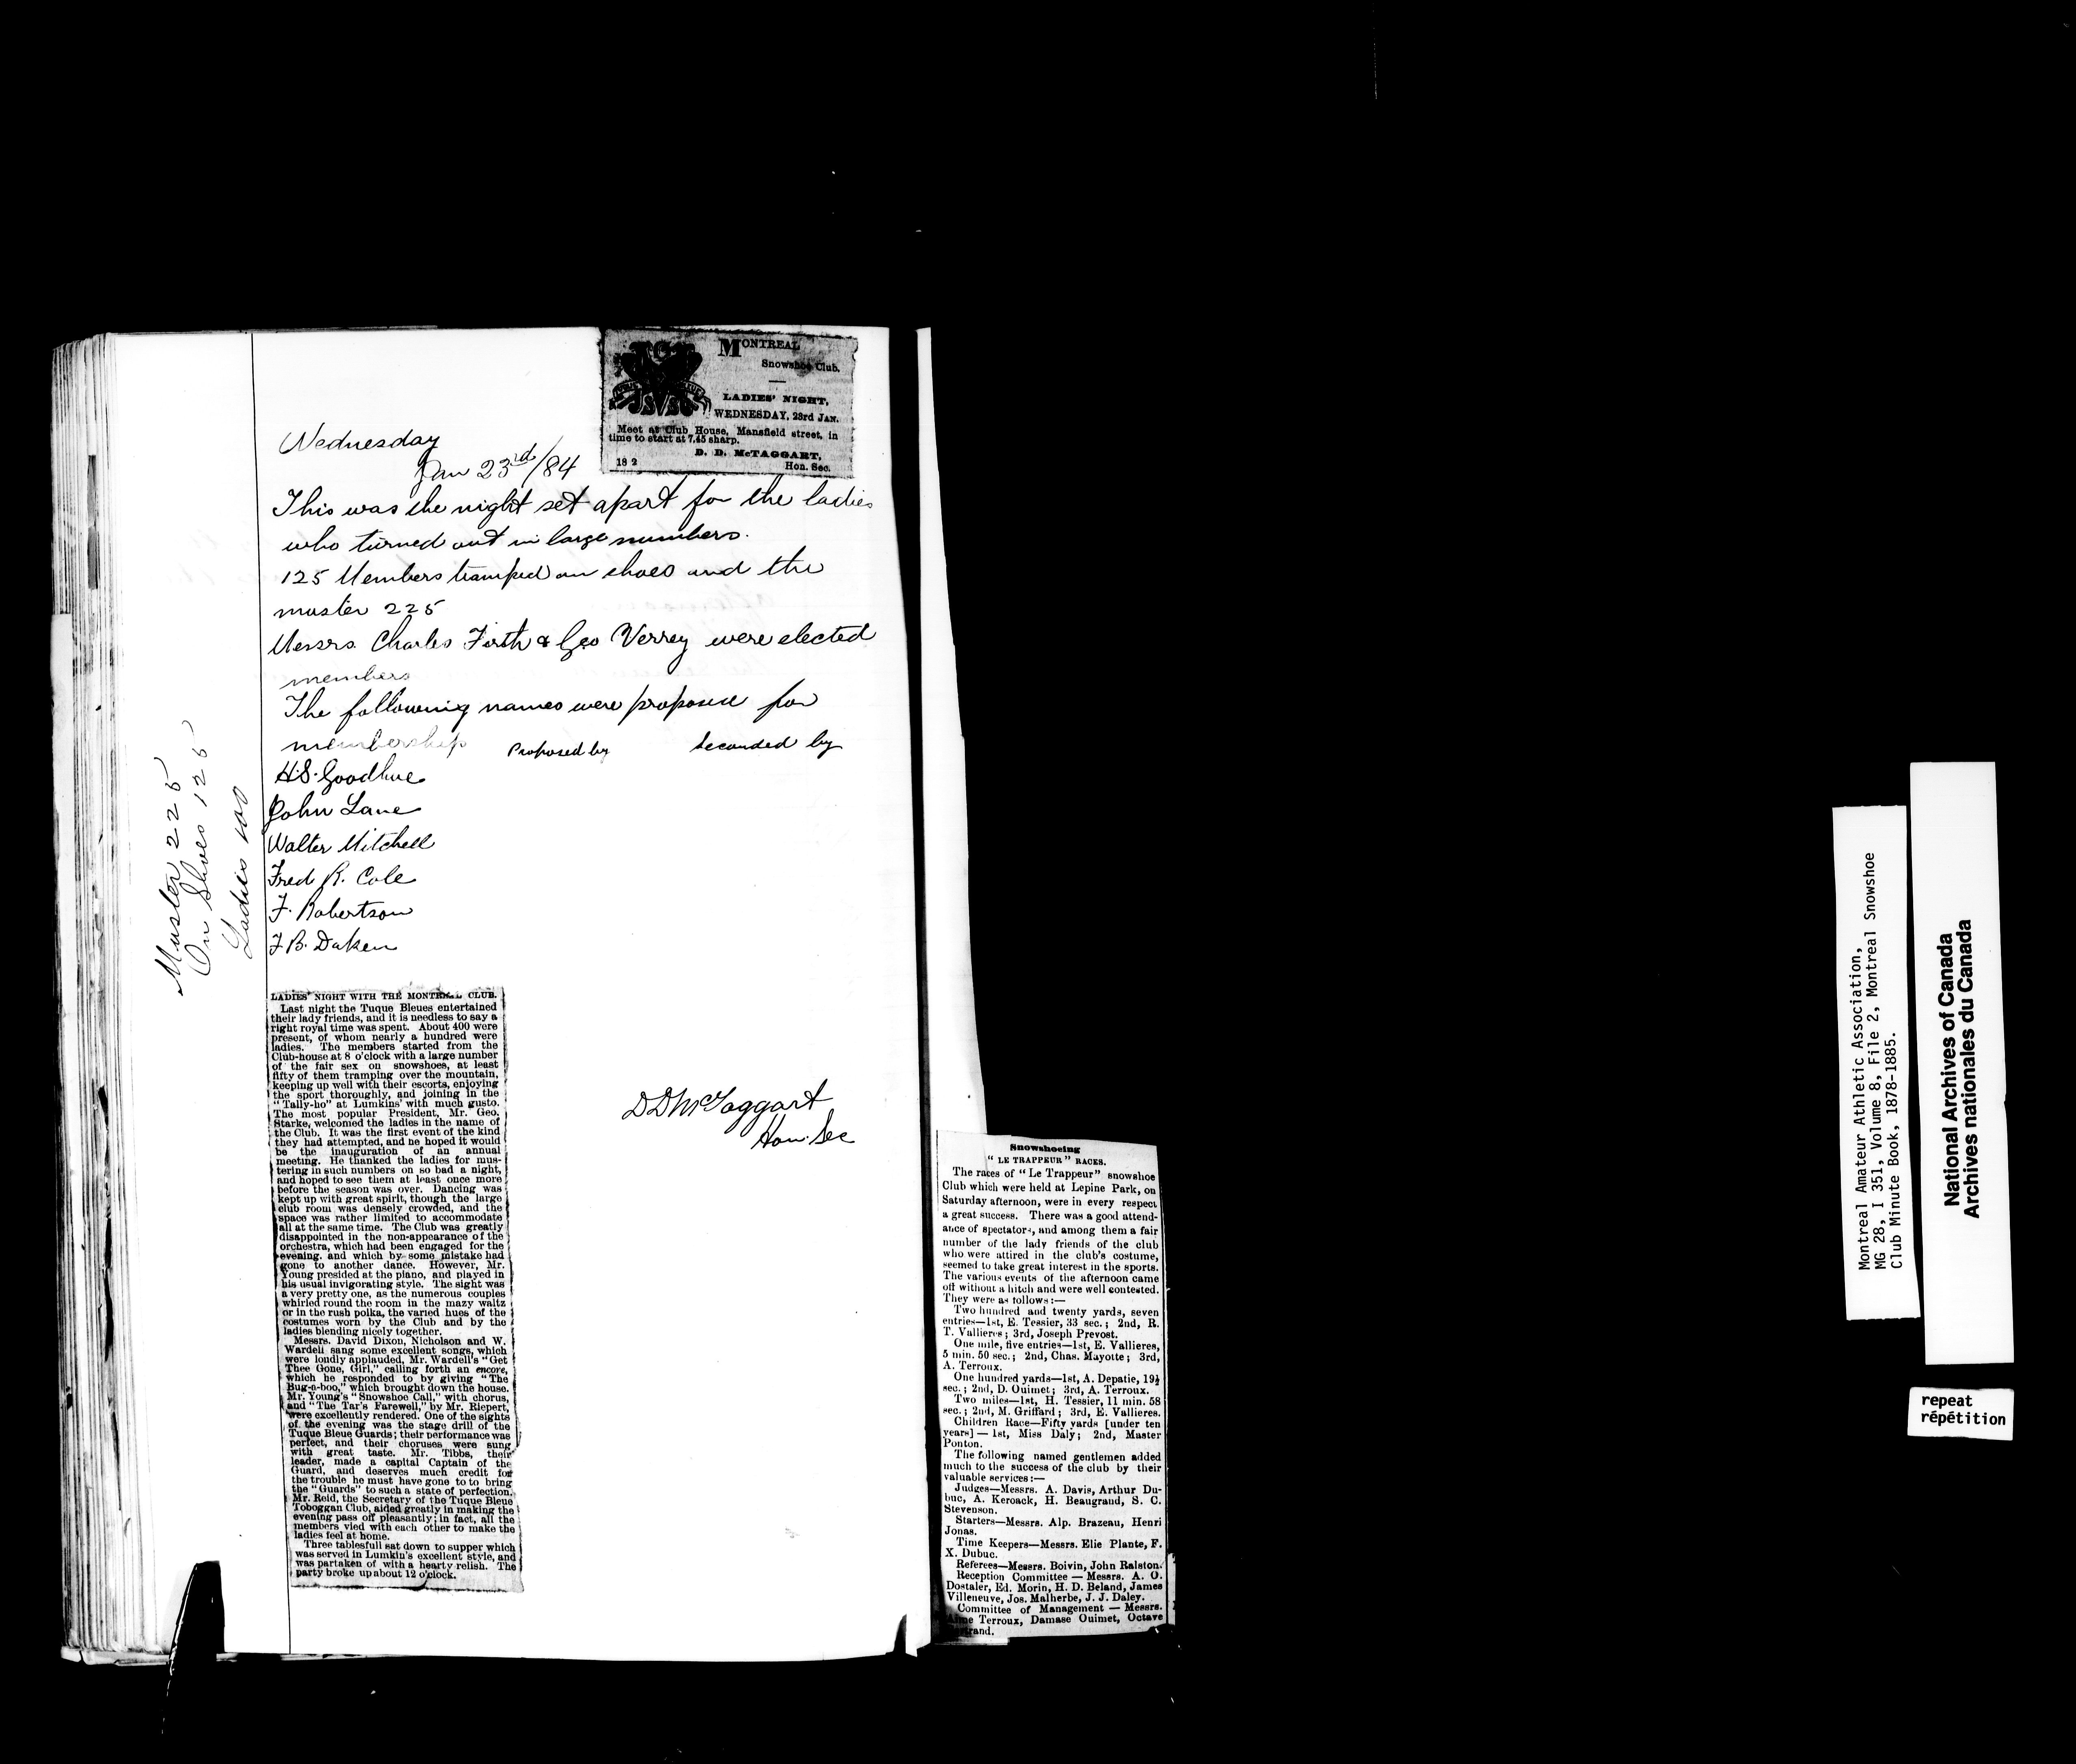 MONTREAL
Snowshoe Club.
LADIES' NIGHT,
WEDNESDAY, 23rd JAN.
Meet at Club House, Mansfield street, in
time to start at 7.45 sharp.
D. D. McTAGGART,
18 2 Hon. Sec.
Wednesday
Jan 23rd/84
This was the night set apart for the ladies
who turned out in large numbers.
125 Members tramped on shoes and the
muster 225
Messrs. Charles Firth & Geo Verrey were elected
members
The following names were proposed for
membership Proposed by Seconded by
H.S. Goodhue
John Lane
Walter Mitchell
Fred R. Cole
F. Robertson
F B. Daken
Muster 225
On Shoes 125
Ladies 100
LADIES' NIGHT WITH THE MONTREAL CLUB.
Last night the Tuque Bleues entertained
their lady friends, and it is needless to say a
right royal time was spent. About 400 were
present, of whom nearly a hundred were
ladies. The members started from the
Club-house at 8 o'clock with a large number
of the fair sex on snowshoes, at least
fifty of them tramping over the mountain,
keeping up well with their escorts, enjoying
the sport thoroughly, and joining in the
"Tally-ho" at Lumkins' with much gusto.
The most popular President, Mr. Geo.
Starke, welcomed the ladies in the name of
the Club. It was the first event of the kind
they had attempted, and he hoped it would
be the inauguration of an annual
meeting. He thanked the ladies for mus-
tering in such numbers on so bad a night,
and hoped to see them at least once more
before the season was over. Dancing was
kept up with great spirit, though the large
club room was densely crowded, and the
space was rather limited to accommodate
all at the same time. The Club was greatly
disappointed in the non-appearance of the
orchestra, which had been engaged for the
evening, and which by some mistake had
gone to another dance. However, Mr.
Young presided at the piano, and played in
his usual invigorating style. The sight was
a very pretty one, as the numerous couples
whirled round the room in the mazy waltz
or in the rush polka, the varied hues of the
costumes worn by the Club and by the
ladies blending nicely together.
Messrs. David Dixon, Nicholson and W.
Wardell sang some excellent songs, which
were loudly applauded, Mr. Wardell's "Get
Thee Gone, Girl," calling forth an encore,
which he responded to by giving "The
Bug-a-boo," which brought down the house.
Mr. Young's "Snowshoe Call," with chorus,
and "The Tar's Farewell," by Mr. Riepert,
were excellently rendered. One of the sights
of the evening was the stage drill of the
Tuque Bleue Guards; their performance was
perfect, and their choruses were sung
with great taste. Mr. Tibbs, their
leader, made a capital Captain of the
Guard, and deserves much credit for
the trouble he must have gone to to bring
the "Guards" to such a state of perfection.
Mr. Reid, the Secretary of the Tuque Bleue
Toboggan Club, aided greatly in making the
evening pass off pleasantly; in fact, all the
members vied with each other to make the
ladies feel at home.
Three tablesfull sat down to supper which
was served in Lumkin's excellent style, and
was partaken of with a hearty relish. The
party broke up about 12 o'clock.
D D McTaggart
Hon. Sec
Snowshoeing
"LE TRAPPEUR" RACES.
The races of "Le Trappeur" snowshoe
Club which were held at Lepine Park, on
Saturday afternoon, were in every respect
a great success. There was a good attend-
ance of spectators, and among them a fair
number of the lady friends of the club
who were attired in the club's costume,
seemed to take great interest in the sports.
The various events of the afternoon came
off without a hitch and were well contested.
They were as follows:—
Two hundred and twenty yards, seven
entries—1st, E. Tessier, 33 sec.; 2nd, R.
T. Vallieres; 3rd, Joseph Prevost.
One mile, five entries—1st, E. Vallieres,
5 min. 50 sec.; 2nd, Chas. Mayotte; 3rd,
A. Terroux.
One hundred yards—1st, A. Depatie, 19½
sec.; 2nd, D. Ouimet; 3rd, A. Terroux.
Two miles—1st, H. Tessier, 11 min. 58
sec.; 2nd, M. Griffard; 3rd, E. Vallieres.
Children Race—Fifty yards [under ten
years]—1st, Miss Daly; 2nd, Master
Ponton.
The following named gentlemen added
much to the success of the club by their
valuable services:—
Judges—Messrs. A. Davis, Arthur Du-
buc, A. Keroack, H. Beaugrand, S. C.
Stevenson.
Starters—Messrs. Alp. Brazeau, Henri
Jonas.
Time Keepers—Messrs. Elie Plante, F.
X. Dubuc.
Referees—Messrs. Boivin, John Ralston.
Reception Committee — Messrs. A. O.
Dostaler, Ed. Morin, H. D. Beland, James
Villeneuve, Jos. Malherbe, J. J. Daley.
Committee of Management — Messrs.
Terroux, Damase Ouimet, Octave
Montreal Amateur Athletic Association,
MG 28, I 351, Volume 8, File 2, Montreal Snowshoe
Club Minute Book, 1878-1885.
National Archives of Canada
Archives nationales du Canada
repeat
répétition